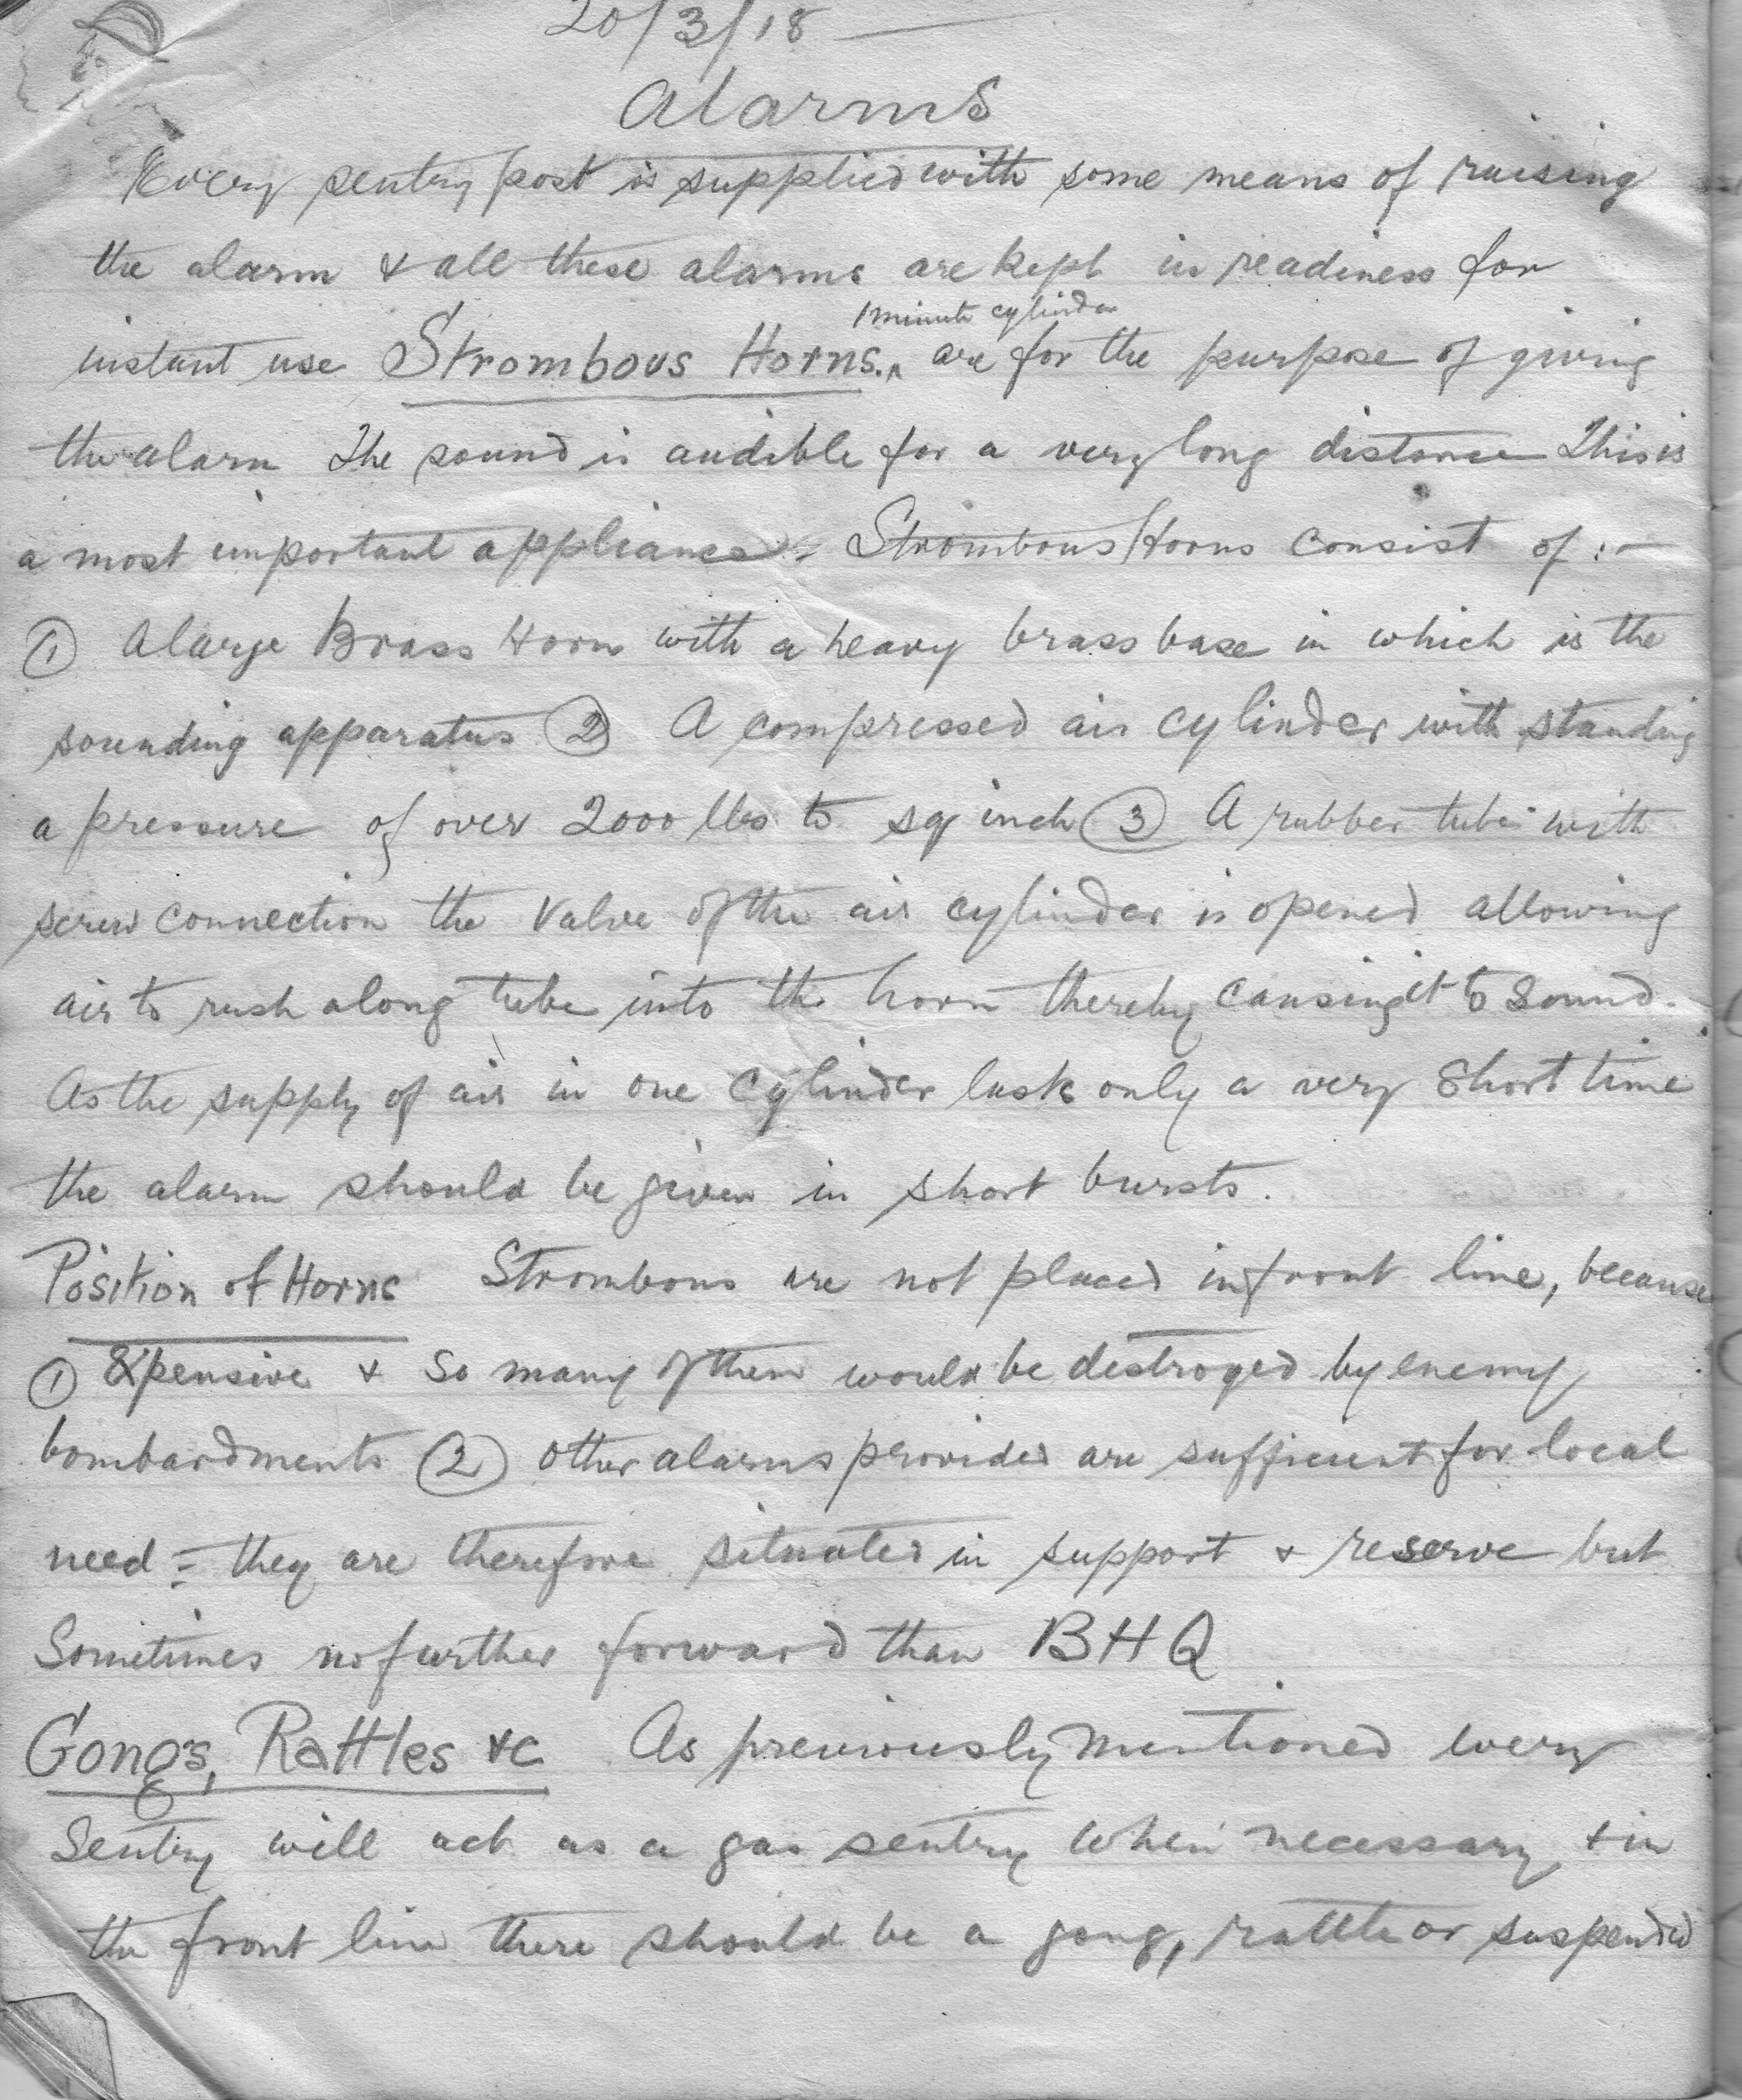 20/3/18 —
Alarms
Every sentry post is supplied with some means of raising
the alarm & all these alarms are kept in readiness for
1 minute cylinder
instant use Strombous Horns.^ are for the purpose of giving
the alarm The sound is audible for a very long distance This is
a most important appliance - Strombous Horns consist of :-
① A large Brass Horn with a heavy brass base in which is the
sounding apparatus ② A compressed air cylinder with standing
a pressure of over 2000 lbs to sq inch ③ A rubber tube with
screw connection the valve of the air cylinder is opened allowing
air to rush along tube into the horn thereby causing it to sound.
As the supply of air in one cylinder lasts only a very short time
the alarm should be given in short bursts.
Position of Horns Strombous are not placed in front line, because
① Expensive & so many of them would be destroyed by enemy
bombardments ② other alarms provided are sufficient for local
need = they are therefore situated in support & reserve but
Sometimes no further forward than BHQ
Gongs, Rattles &c As previously mentioned every
Sentry will act as a gas sentry when necessary, & in
the front line there should be a gong, rattle or suspended